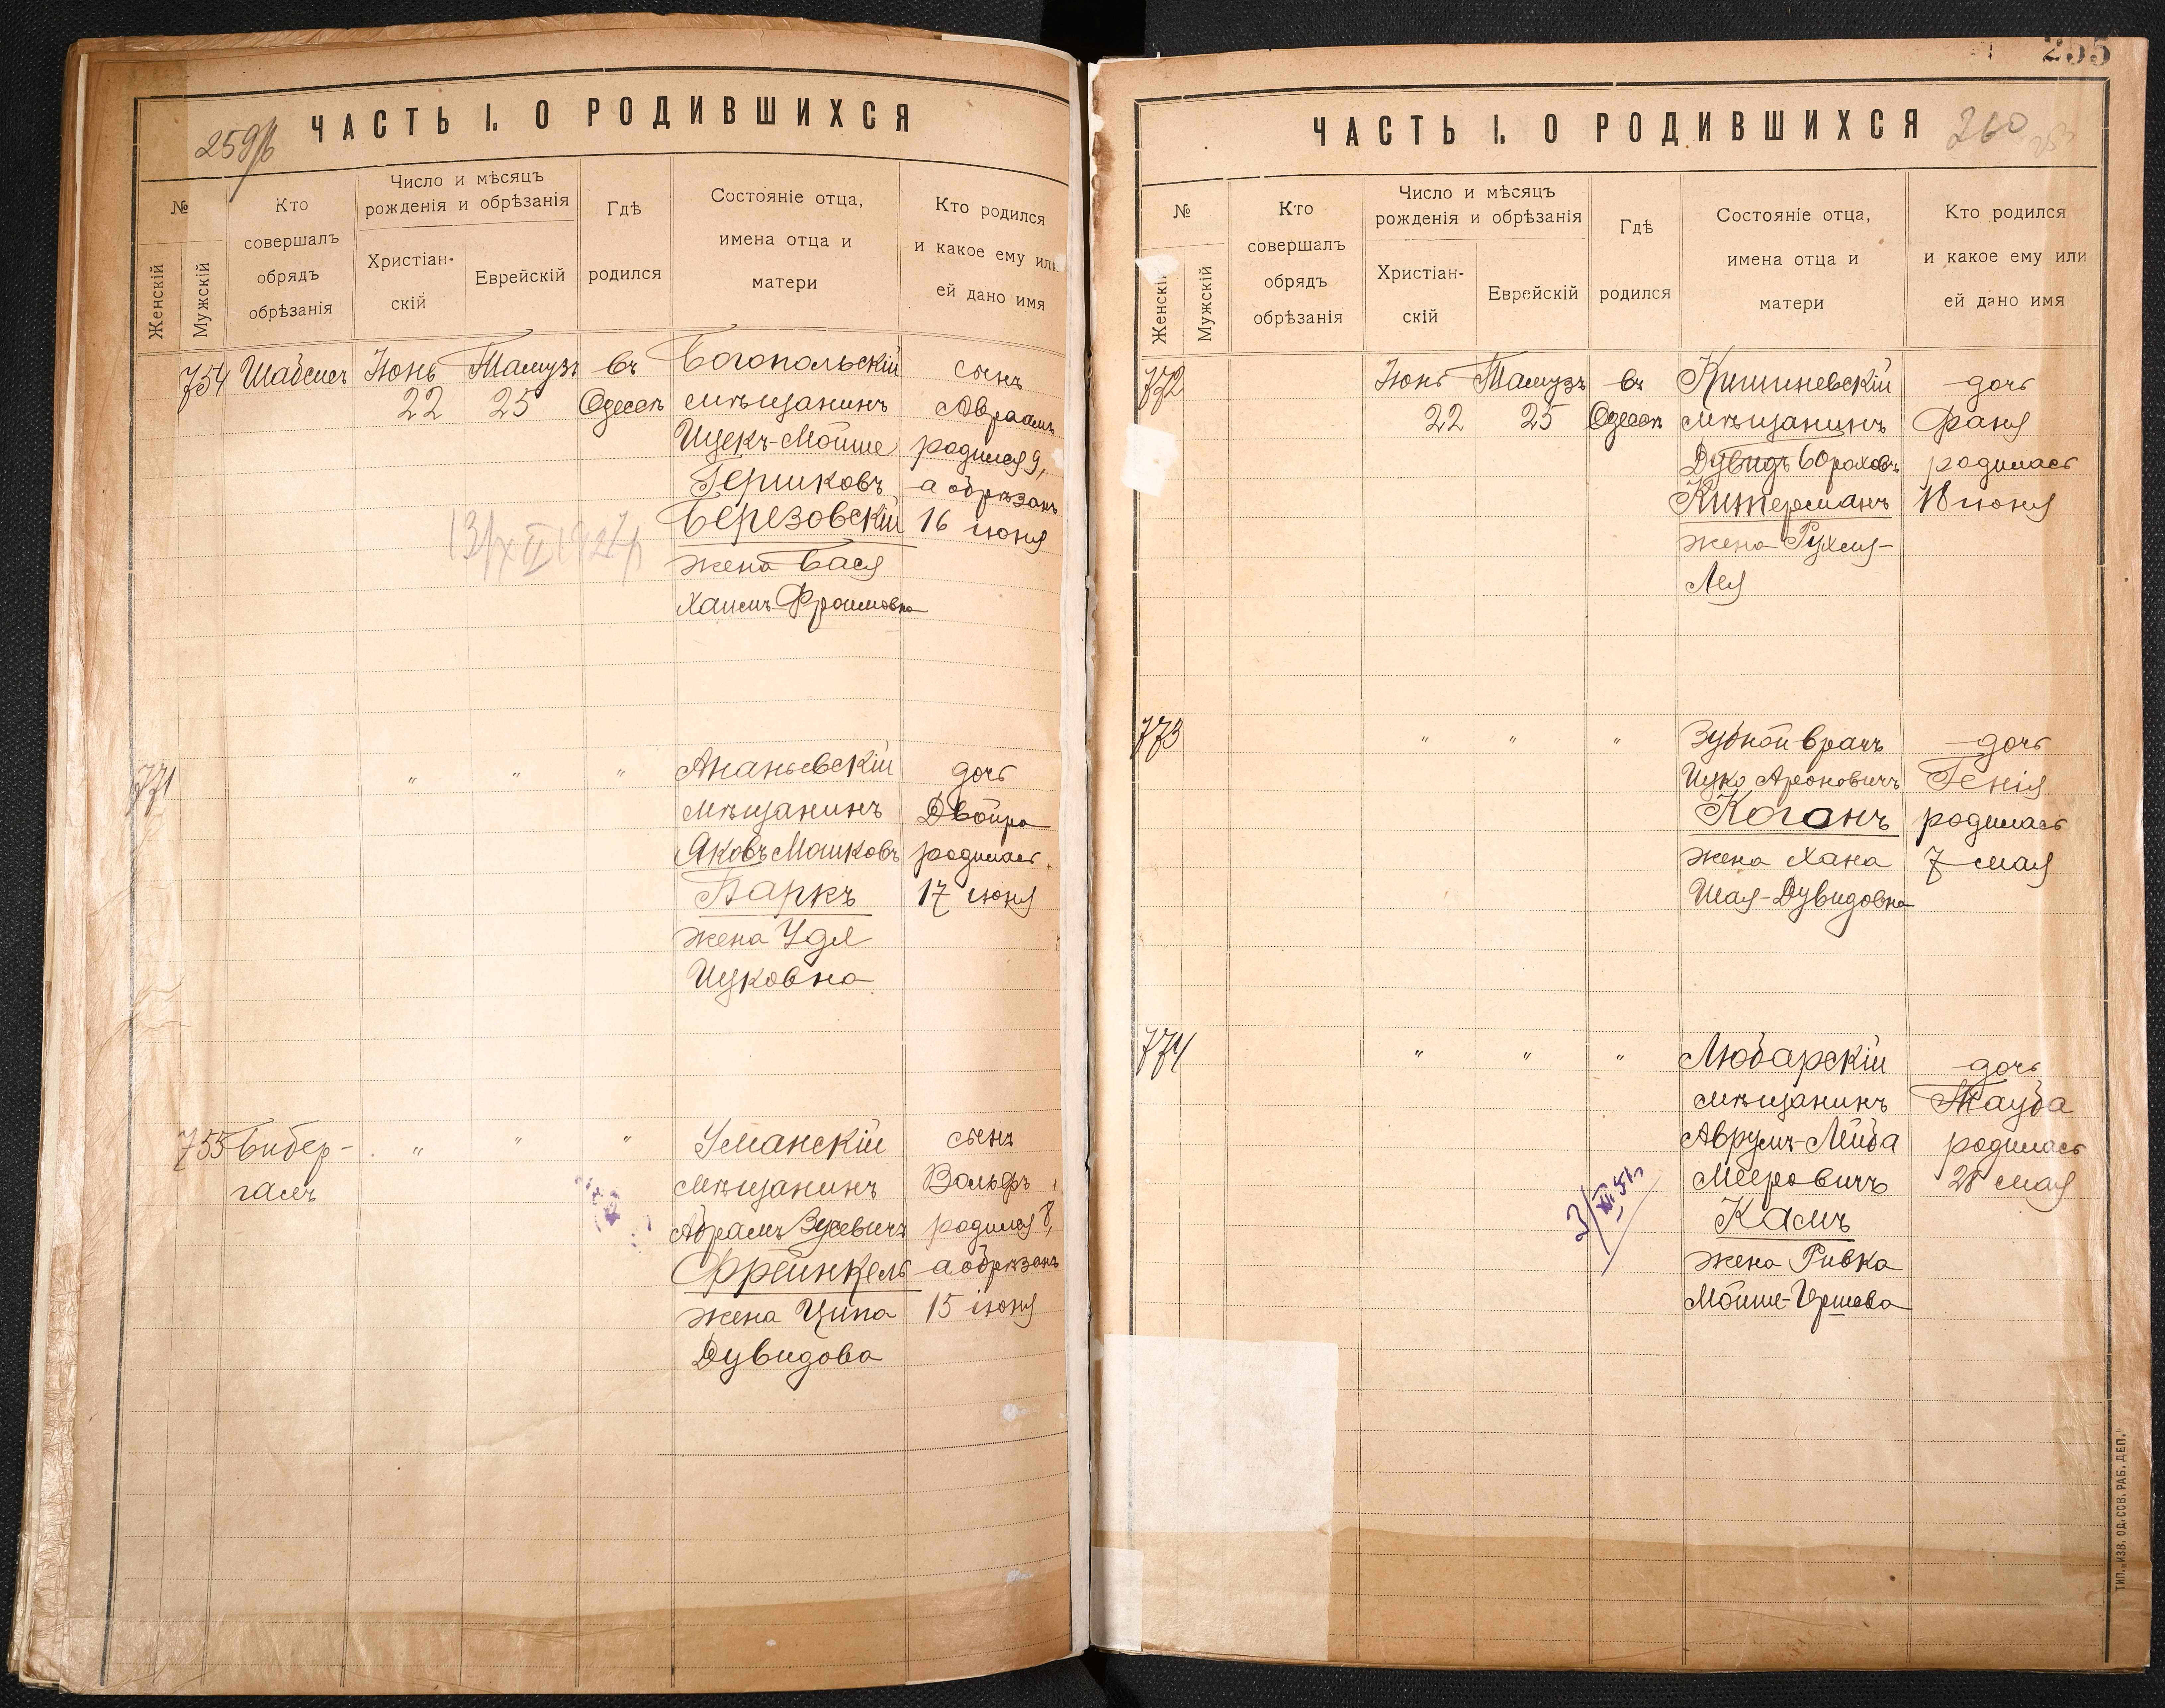 ЧАСТЬ I. О РОДИВШИХСЯ
259/б
№
Женскій
Мужскій
Кто совершалъ обрядъ обрѣзанія
Число и мѣсяцъ рожденія и обрѣзанія
Христіан-скій
Еврейскій
Гдѣ родился
Состояніе отца, имена отца и матери
Кто родился и какое ему или ей дано имя
754 Шабсис Іюнь Тамузъ въ Богопольскій сынъ
22 25 Одессѣ мѣщанинъ Авраамъ
Ицекъ-Мойше родился 9,
Гершковъ а обрѣзанъ
Березовскій 16 іюня
жена Бася
Хаимъ-Фроимовна
771 " " " Ананьевскій дочь
мѣщанинъ Двойра
Яковъ Мошковъ родилась
Паркъ 17 іюня
жена Удл
Ицковна
755 Бибер- " " " Уманскій сынъ
галъ мѣщанинъ Вольфъ
Абрамъ Зусевичъ родился 8,
Фрейнкель а обрѣзанъ
жена Ципа 15 іюня
Дувидова
255
ЧАСТЬ I. О РОДИВШИХСЯ
260
№
Женскій
Мужскій
Кто совершалъ обрядъ обрѣзанія
Число и мѣсяцъ рожденія и обрѣзанія
Христіан-скій
Еврейскій
Гдѣ родился
Состояніе отца, имена отца и матери
Кто родился и какое ему или ей дано имя
772 Іюнь Тамузъ въ Кишиневскій дочь
22 25 Одессѣ мѣщанинъ Фаня
Дувидъ Бороховъ родилась
Китерманъ 18 іюня
жена Рухля-
Лея
773 " " " Зубной врачъ дочь
Ицко Ароновичъ Генія
Коганъ родилась
жена Хана 7 мая
Шая-Дувидовна
774 " " " Любарскій дочь
мѣщанинъ Тауба
Аврумъ-Лейба родилась
Мееровичъ 28 мая
Камъ
жена Ривка
Мойше-Гершова
ТИП. „ИЗВ. ОД. СОВ. РАБ. ДЕП."